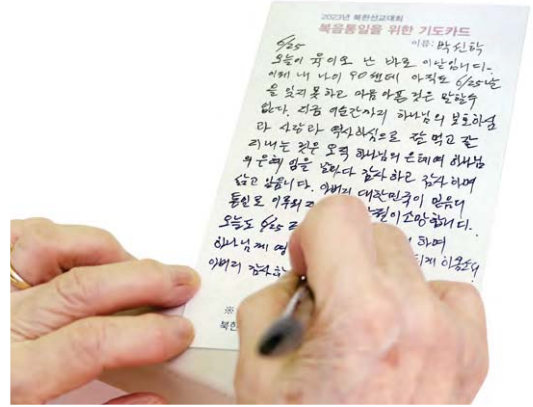 2023년 북한선교대회
복음통일을 위한 기도카드
이름: 박신학
6/25
오늘이 육이오 난 바로 이날입니다.
이제 내 나이 90센데 아직도 6/25날
을 잊지 못하고 마음 아픈것은 말할수
없다. 지금 이순간까지 하나님의 보호하심
과 사랑과 역사하심으로 잘 먹고 잘
지내는 것은 오직 하나님의 은혜며 하나님
의 은혜 임을 날마다 감사하고 감사하며
살고 있습니다. 아버지 대한민국이 믿음의
통일로 이루워 소망합니다.
오늘도 6/25
하나님께 하며
아버지 감사
※
북한